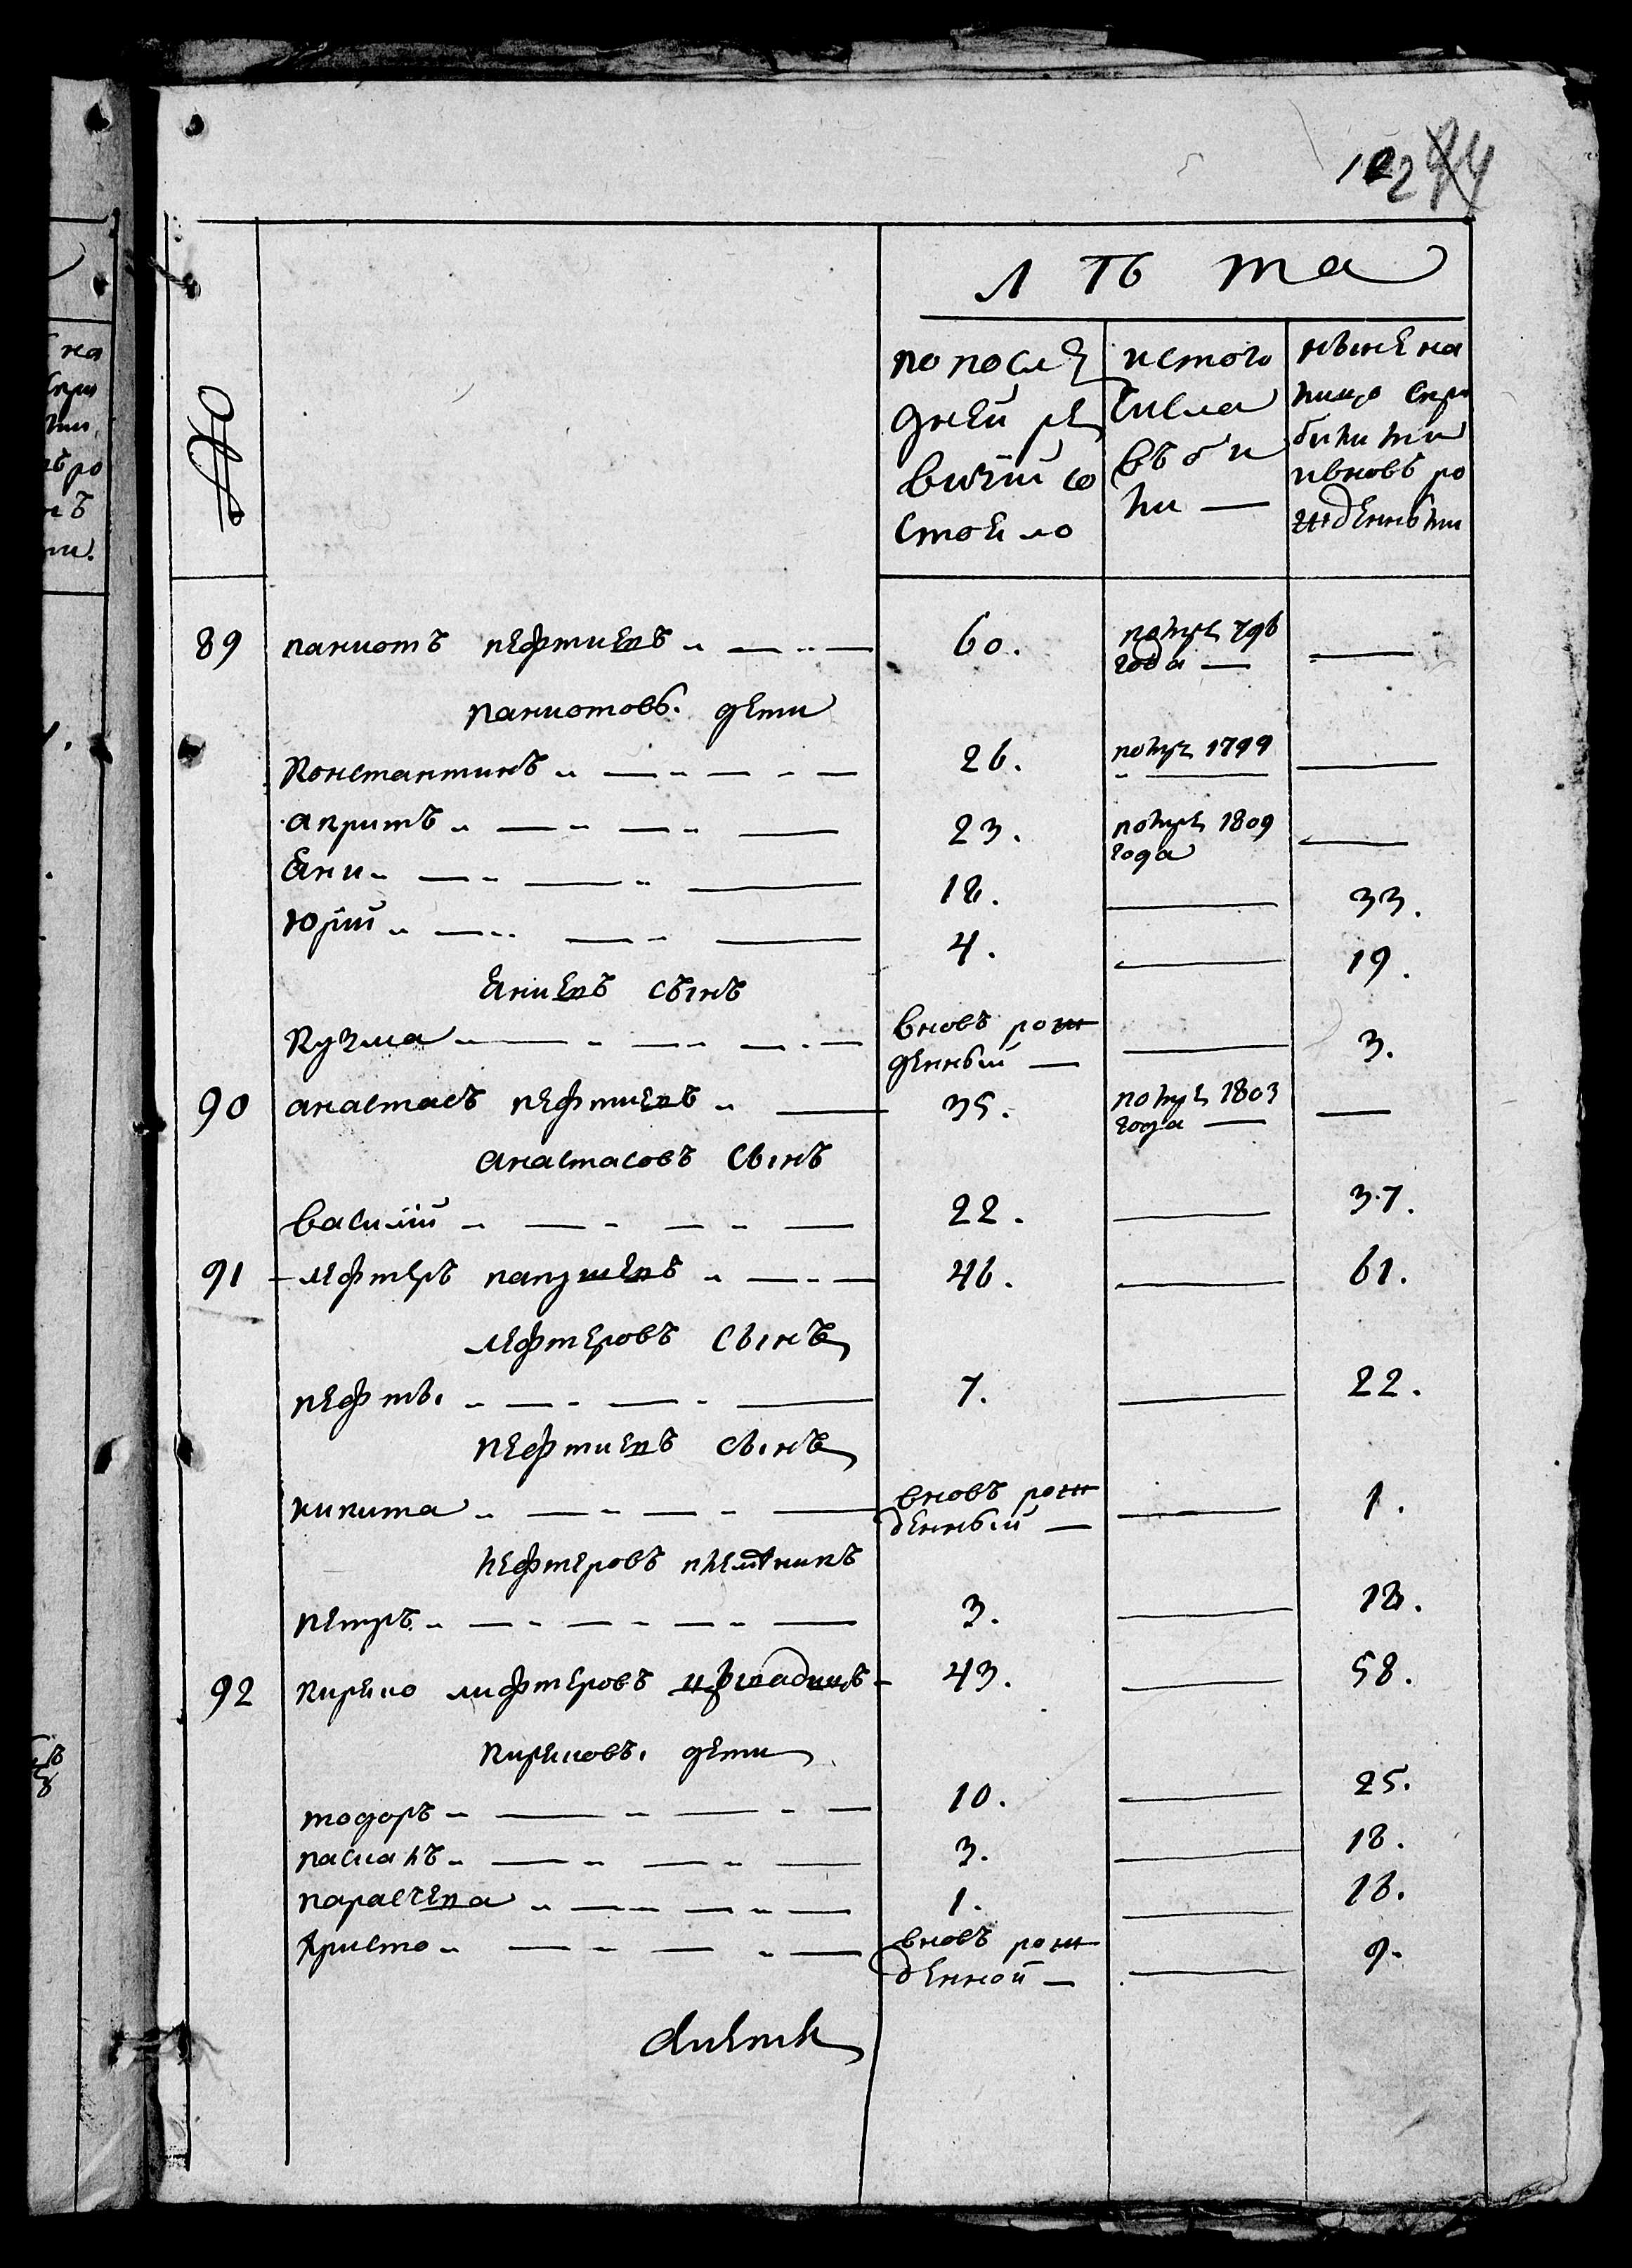 102
Л ѣ та
№
по послѣ
дней ре
визіи со
стояло
ис того
числа
вы бы
ли —
ныне на
лицо с при
былими
и вновь ро
жденными
89 паниотъ пефтиевъ 60. помре 796
года —
паниотовы дети
Константинъ 26. помре 1799
апритъ 23. помре 1809
года
Яни 18. 33.
Юрій 4. 19.
Яниевъ сынъ
Кузма вновь рож
денный — 3.
90 анастасъ пефтиевъ 35. помре 1803
года —
анастасовъ сынъ
василій 22. 37.
91 лефтеръ папушевъ 46. 61.
лефтеровъ сынъ
пефты 7. 22.
пефтиевъ сынъ
никита вновь рож
денный — 1.
лефтеровъ племянникъ
петръ 3. 18.
92 Кирьяко лифтеровъ 43. 58.
Кирьяковы дети
тодоръ 10. 25.
паскалъ 3. 18.
парастева 1. 16.
христо вновь рож
денной — 9.